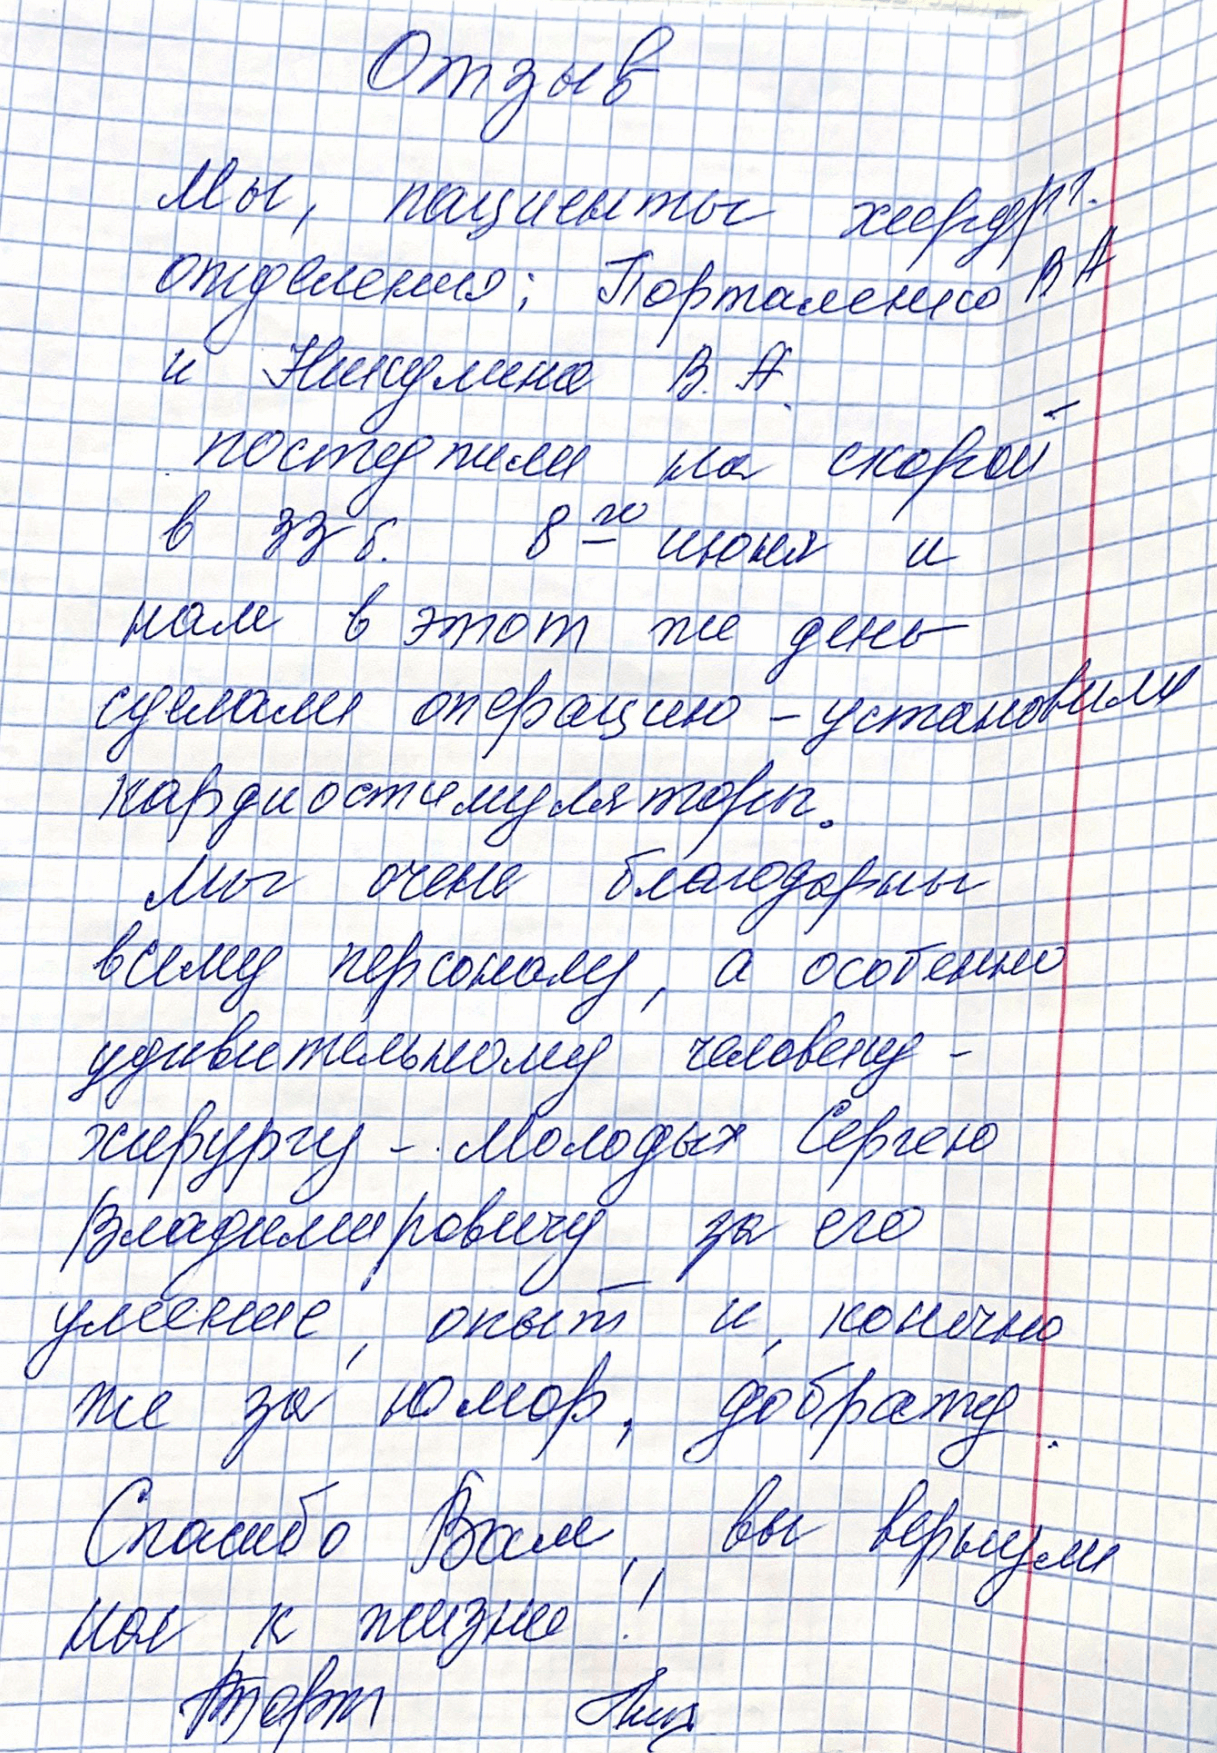 Отзыв
Мы, пациенты хирург.
отделения: Порталенко В А
и Никулина В. А.
поступили на скорой
в 33 б. 8го июня и
нам в этот же день
сделали операцию - установили
кардиостимуляторы.
Мы очень благодарны
всему персоналу, а особенно
удивительному человеку -
хирургу - Молодых Сергею
Владимировичу за его
умение, опыт и, конечно
же за юмор, доброту.
Спасибо Вам, вы вернули
нас к жизни!